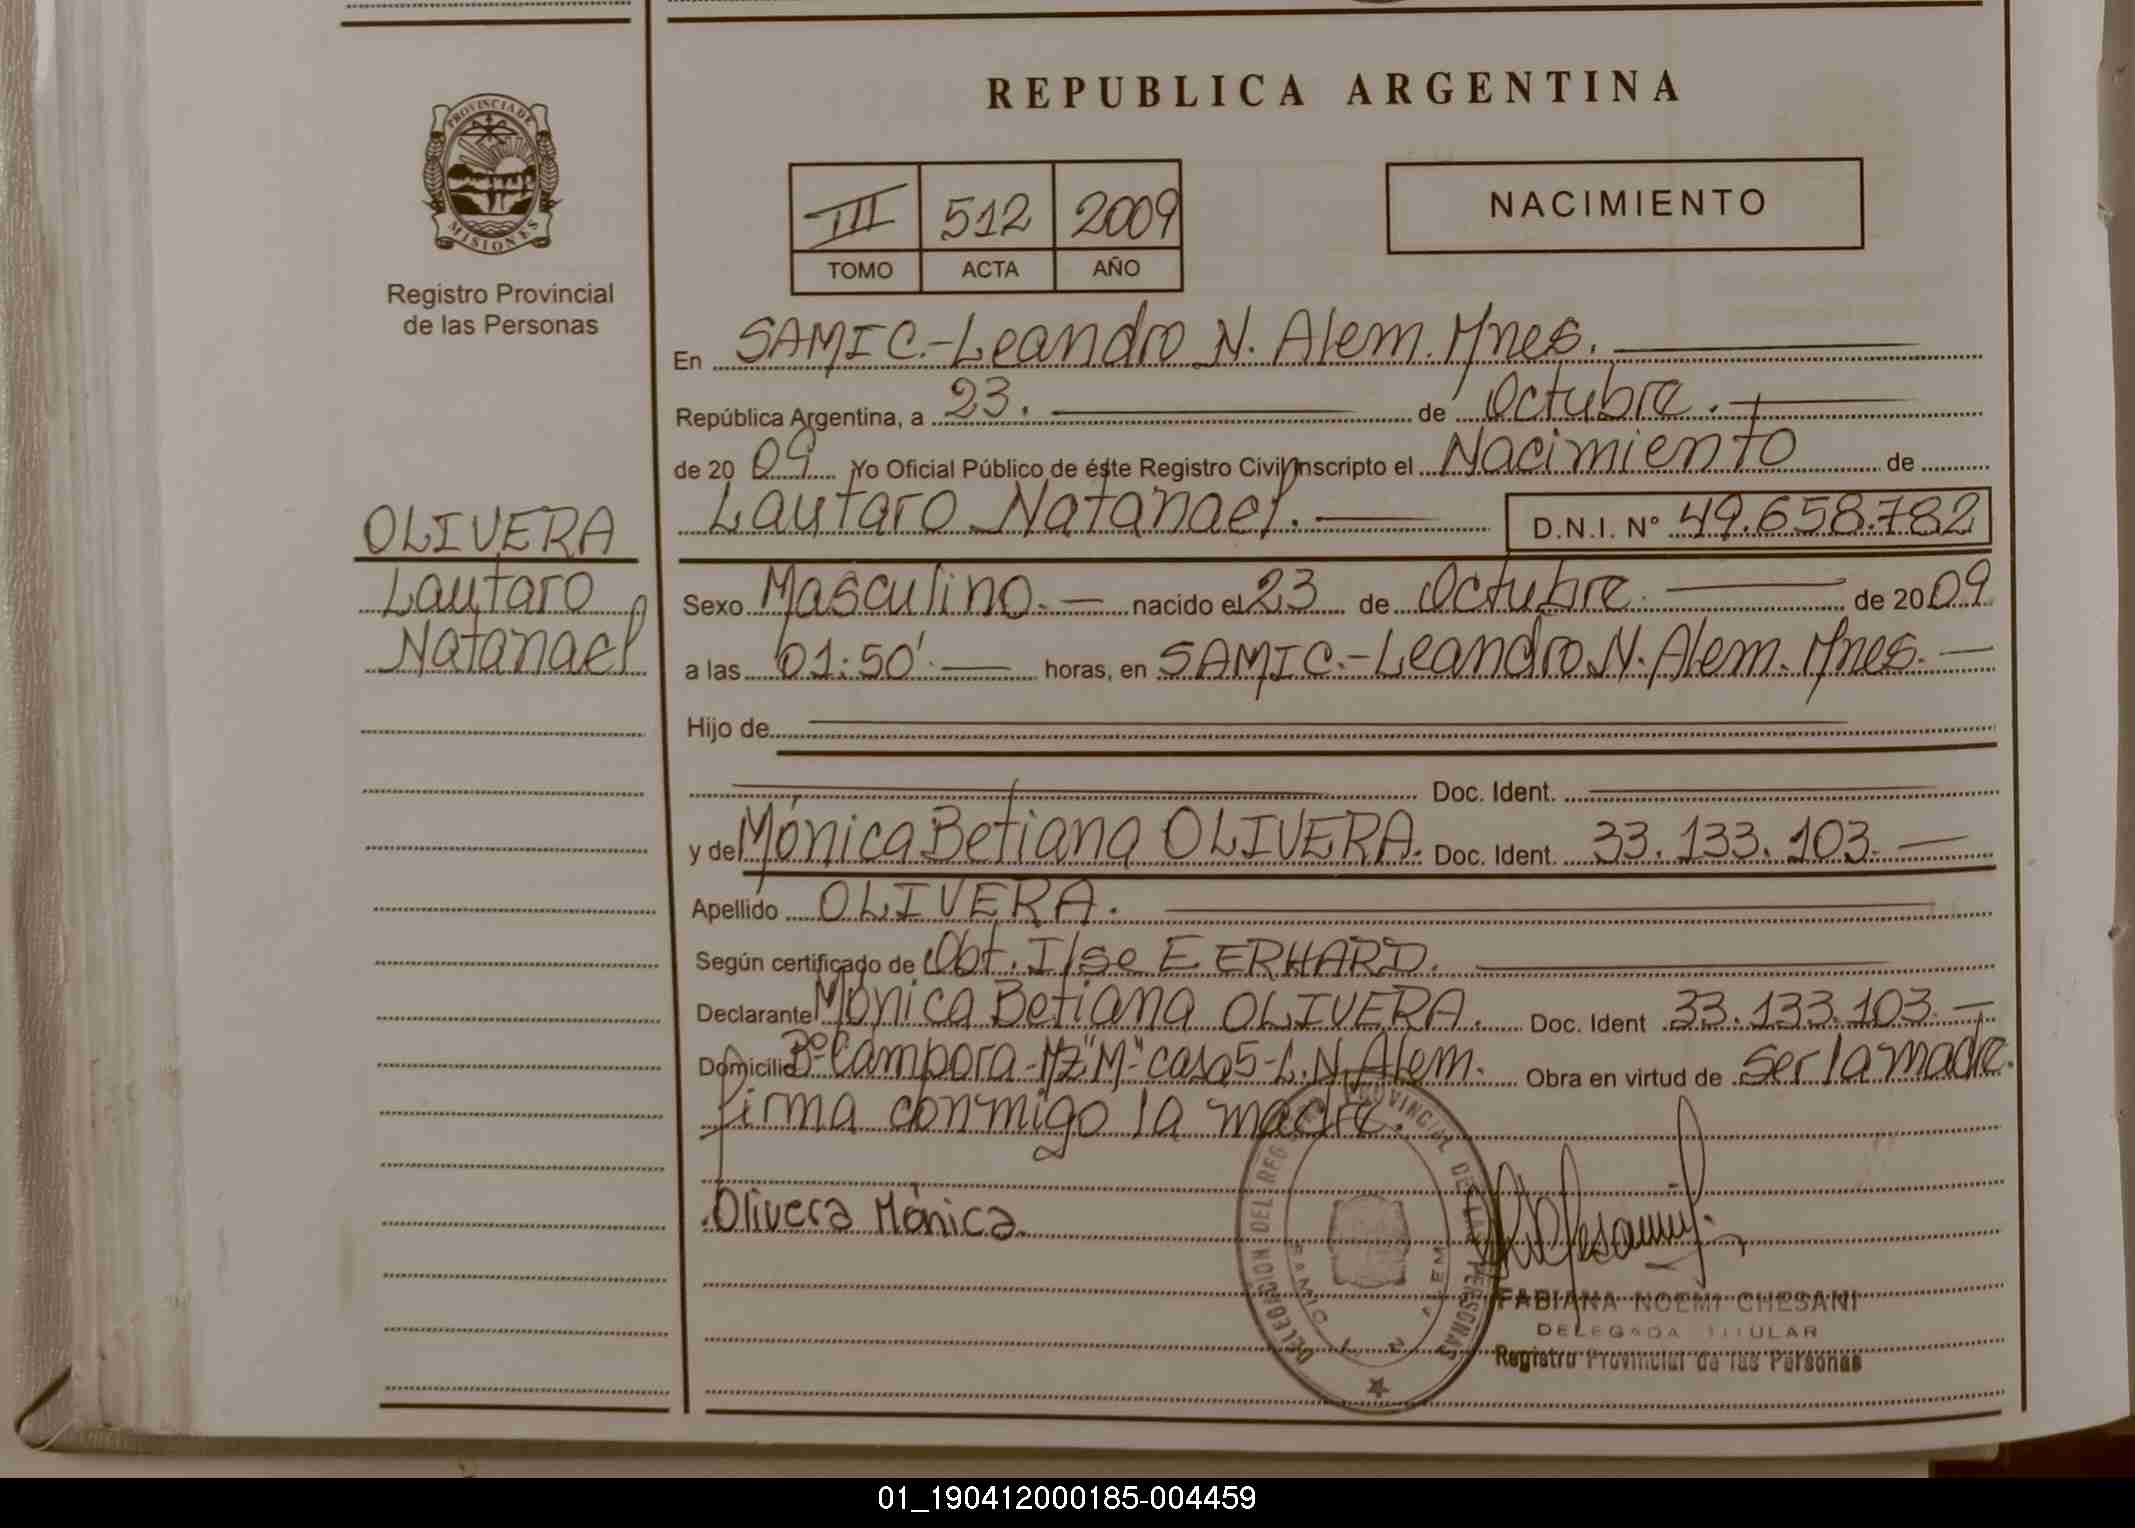 REPUBLICA ARGENTINA
PROVINCIA DE
MISIONES
Registro Provincial
de las Personas
III 512 2009
TOMO ACTA AÑO
NACIMIENTO
En SAMIC.-Leandro N. Alem. Mnes.
República Argentina, a 23. de Octubre.
de 20 09 Yo Oficial Público de éste Registro Civil inscripto el Nacimiento de
Lautaro Natanael. D.N.I. Nº 49.658.782
OLIVERA
Lautaro
Natanael
Sexo Masculino. nacido el 23 de Octubre. de 20 09
a las 01:50'. horas, en SAMIC.-Leandro N. Alem. Mnes.
Hijo de
Doc. Ident.
y de Mónica Betiana OLIVERA. Doc. Ident. 33.133.103.
Apellido OLIVERA.
Según certificado de Obt. Ilse E ERHARD.
Declarante Mónica Betiana OLIVERA. Doc. Ident 33.133.103.
Domicilio Bº Campora-Mz"M"-casa5-L.N.Alem. Obra en virtud de ser la madre.
firma conmigo la madre.
Olivera Mónica.
DELEGACION DEL REG PROVINCIAL DE LAS PERSONAS
FABIANA NOEMI CHESANI
DELEGADA TITULAR
Registro Provincial de las Personas
01_190412000185-004459